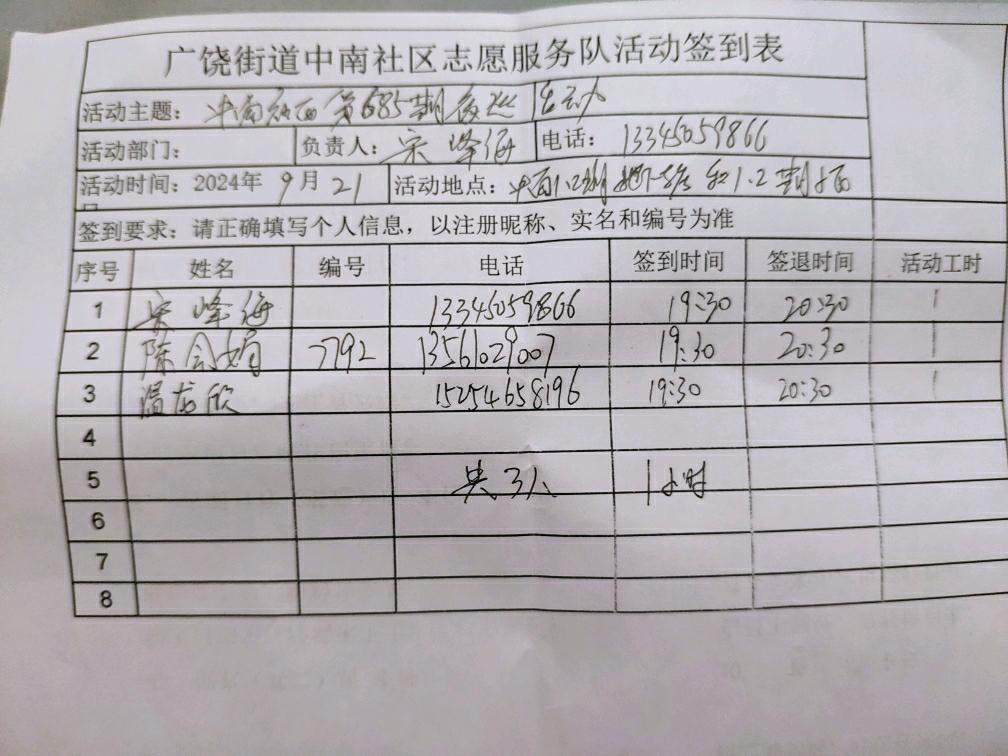 广饶街道中南社区志愿服务队活动签到表
活动主题: 中南社区第685期夜巡 活动
活动部门: 负责人: 宋峰海 电话: 13345059866
活动时间: 2024年 9月21 活动地点: 中南1.2期 和1.2期
日
签到要求: 请正确填写个人信息, 以注册昵称、实名和编号为准
序号 姓名 编号 电话 签到时间 签退时间 活动工时
1 宋峰海 13345059866 19:30 20:30 1
2 陈会娟 7792 13561029007 19:30 20:30 1
3 温龙欣 15254658196 19:30 20:30 1
4
5 共3人 1小时
6
7
8